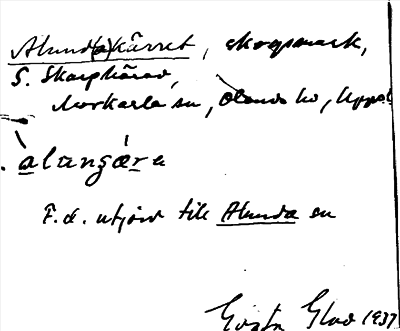 Alund(a)kärret, skogsmark,
S. Skarphärad,
Morkarla sn, Olands hd, Uppsal
àlungǽra
F.d. utjord till Alunda sn
Gösta Glad 1937